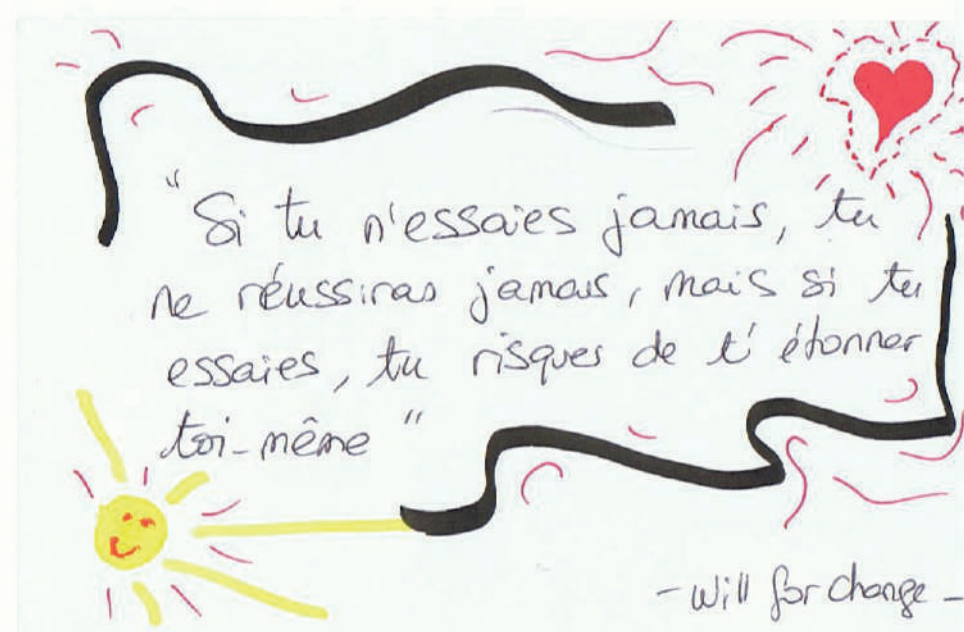 "Si tu n'essaies jamais, tu
ne réussiras jamais, mais si tu
essaies, tu risques de t'étonner
toi-même"
- Will for change -